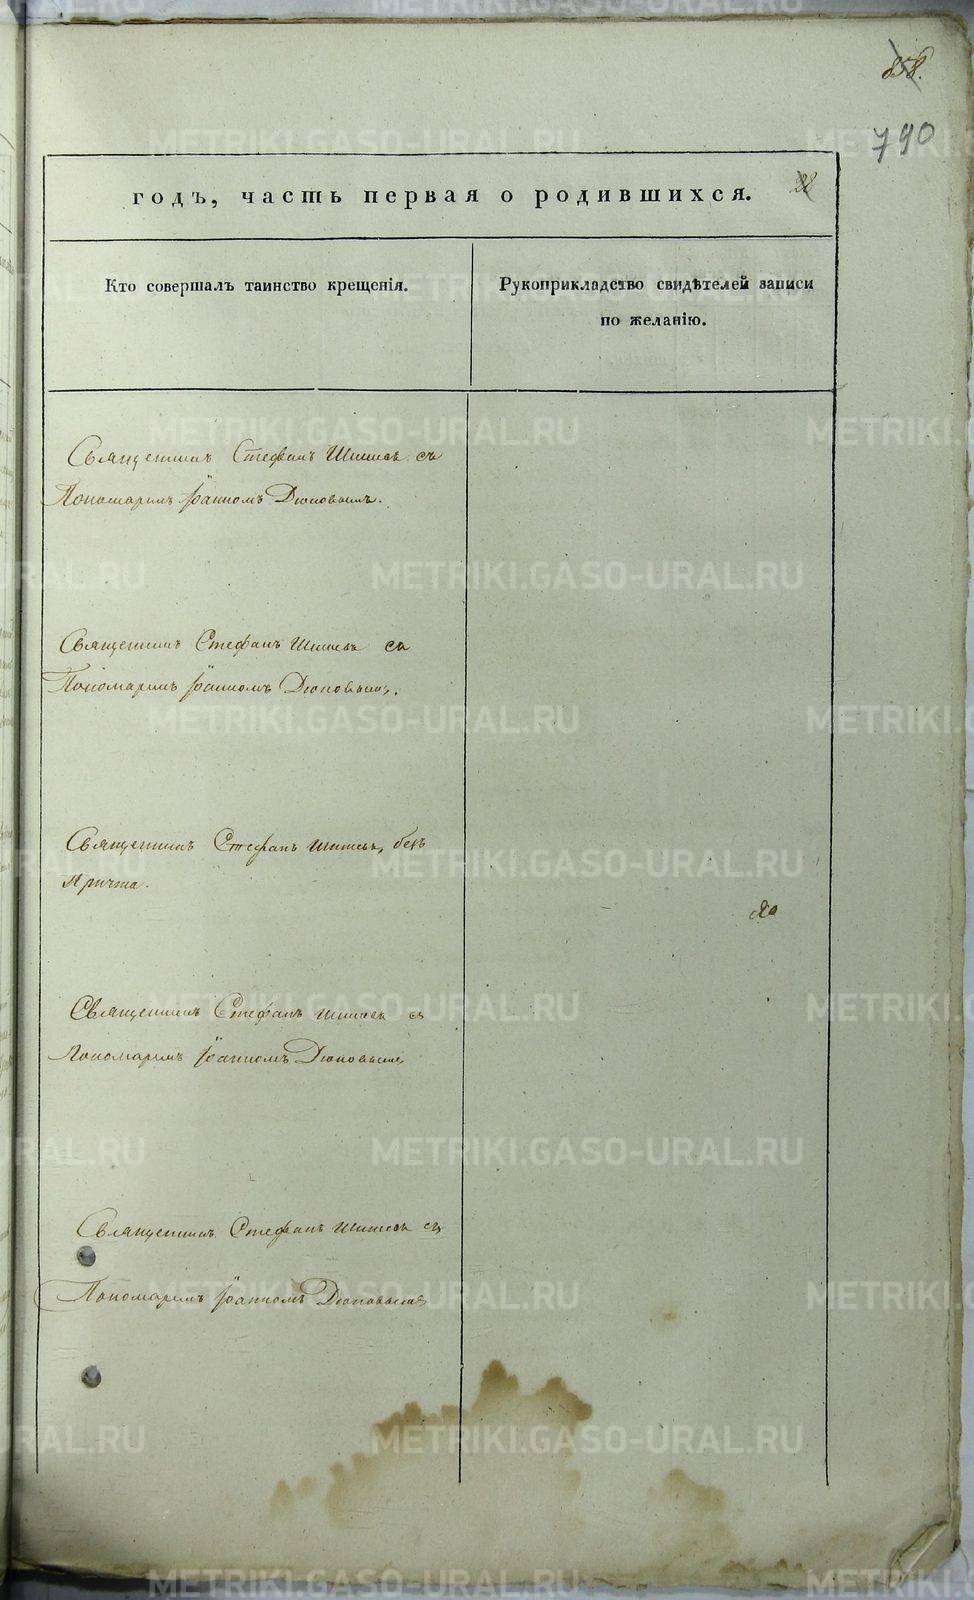 858.
790
28
годъ, часть первая о родившихся.
Кто совершалъ таинство крещенія.
Рукоприкладство свидѣтелей записи
по желанію.
Священникъ Стефанъ съ
Пономаремъ Іоанномъ Дюповымъ.
Священникъ Стефанъ съ
Пономаремъ Іоанномъ Дюповымъ.
Священникъ Стефанъ безъ
Причта.
Священникъ Стефанъ съ
Пономаремъ Іоанномъ Дюповымъ
Священникъ Стефанъ съ
Пономаремъ Іоанномъ Дюповымъ
METRIKI.GASO-URAL.RU